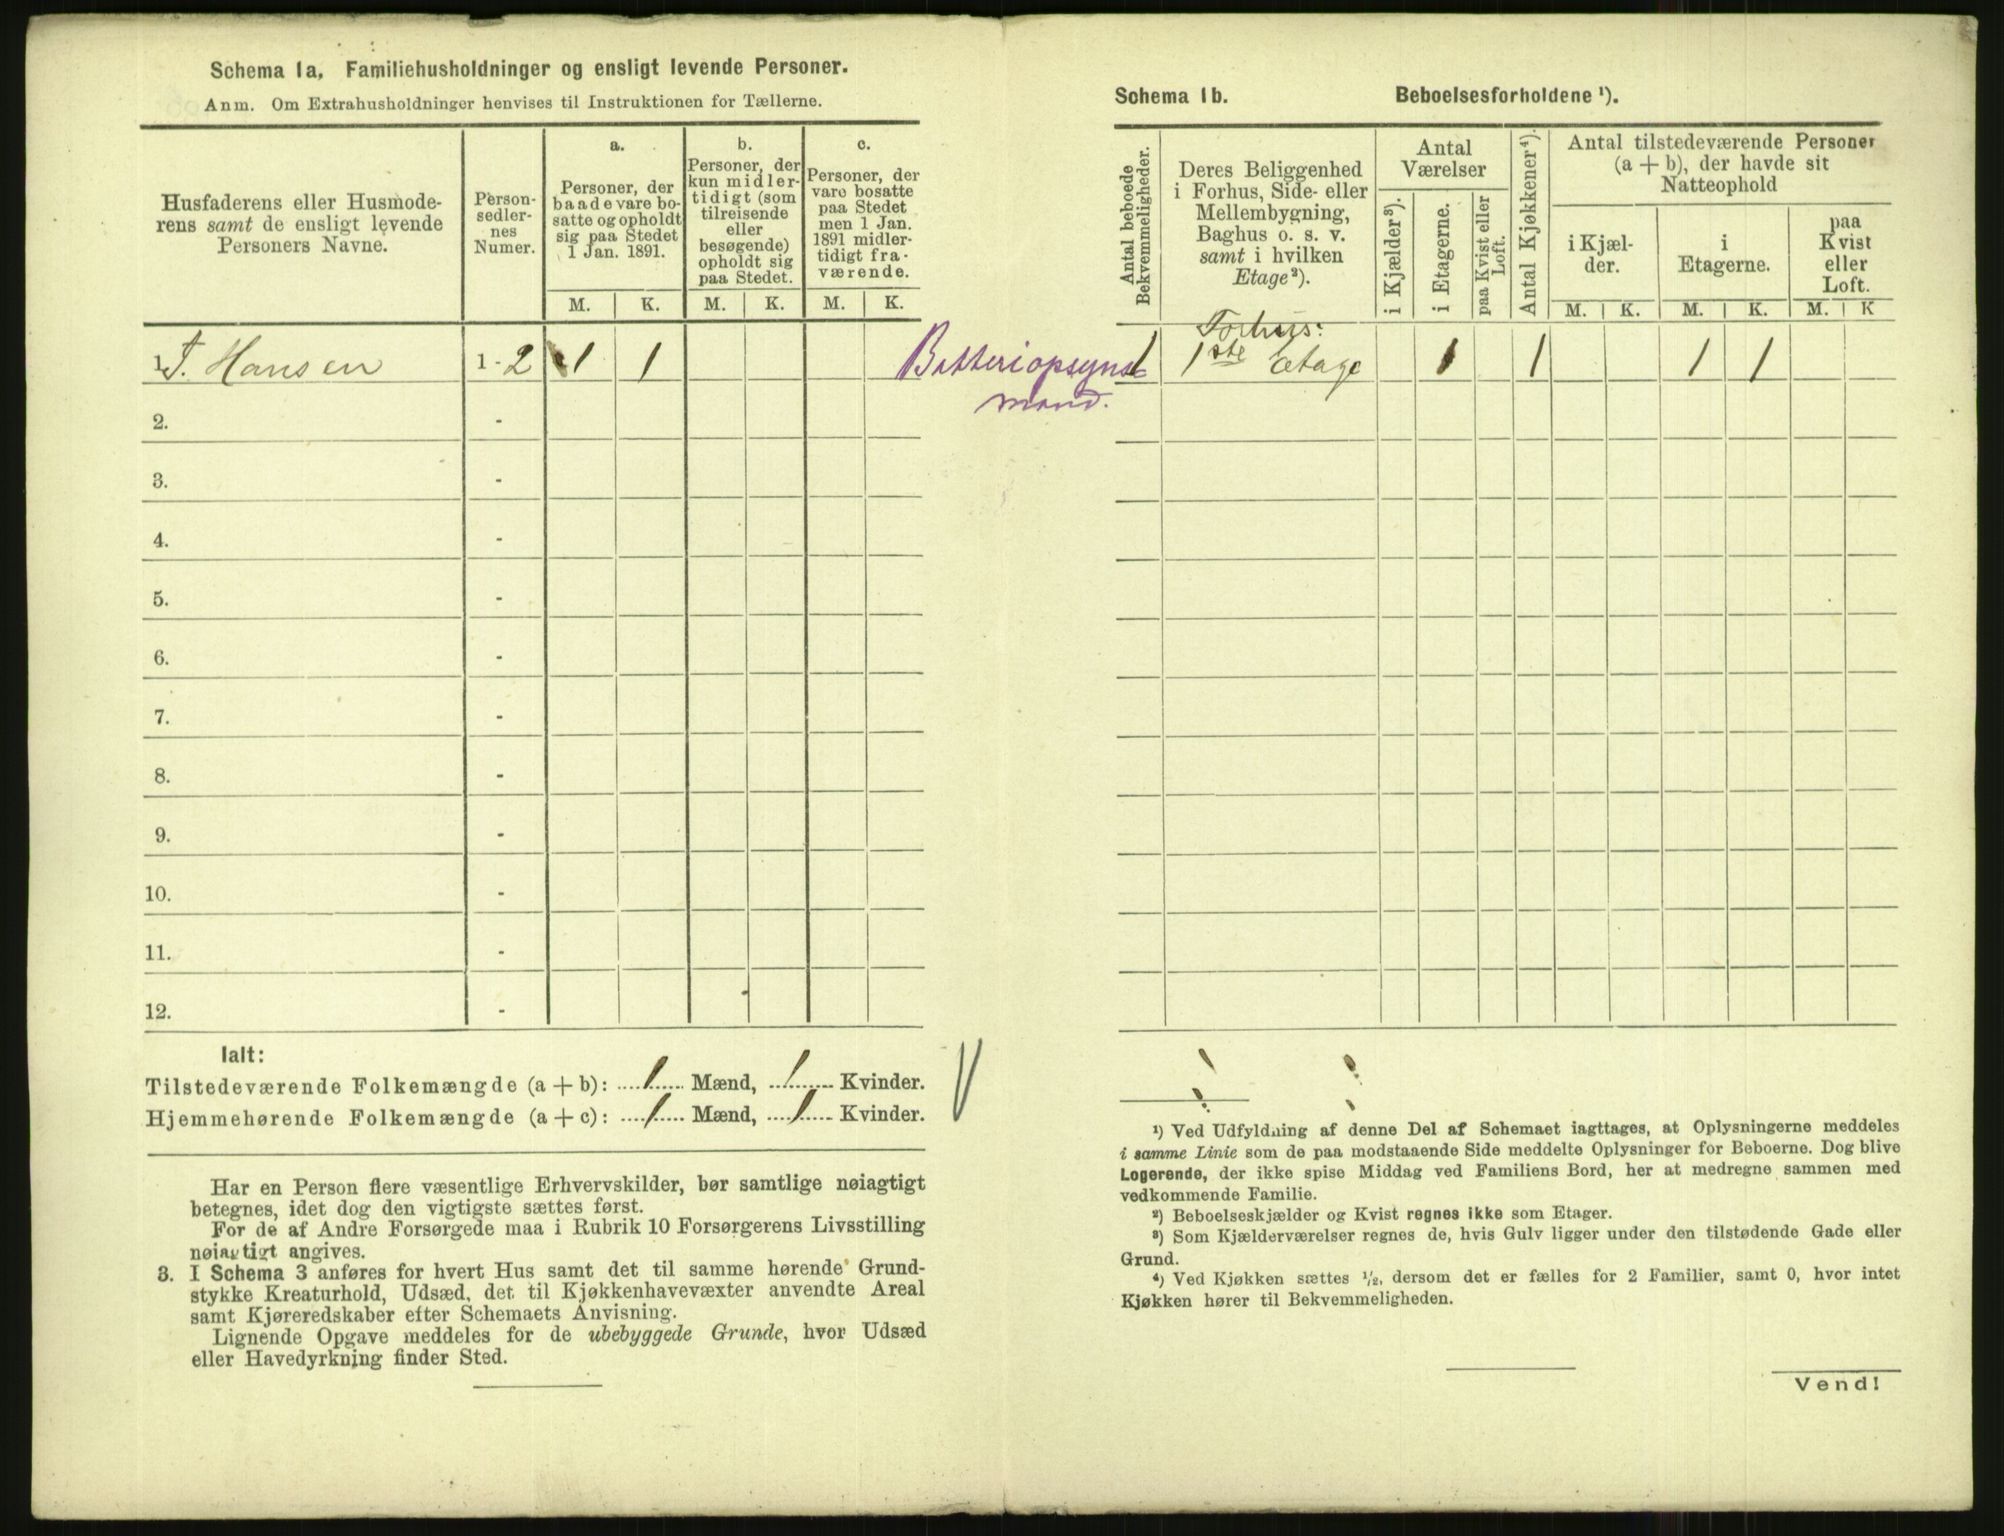 Schema 1a, Familiehusholdninger og ensligt levende Personer.
Anm. Om Extrahusholdninger henvises til Instruktionen for Tællerne.
Husfaderens eller Husmode-
rens samt de ensligt levende
Personers Navne.
Person-
sedler-
nes
Numer.
a.
Personer, der
baade vare bo-
satte og opholdt
sig paa Stedet
1 Jan. 1891.
b.
Personer, der
kun midler-
tidigt (som
tilreisende
eller
besøgende)
opholdt sig
paa Stedet.
c.
Personer, der
vare bosatte
paa Stedet
men 1 Jan.
1891 midler-
tidigt fra-
værende.
M. K. M. K. M. K.
1. Hansen 1 - 2 1 1
Batteriopsyns-
mand.
2. -
3. -
4. -
5. -
6. -
7. -
8. -
9. -
10. -
11. -
12. -
Ialt:
Tilstedeværende Folkemængde (a + b): 1 Mænd, 1 Kvinder.
Hjemmehørende Folkemængde (a + c): 1 Mænd, 1 Kvinder.
Har en Person flere væsentlige Erhvervskilder, bør samtlige nøiagtigt
betegnes, idet dog den vigtigste sættes først.
For de af Andre Forsørgede maa i Rubrik 10 Forsørgerens Livsstilling
nøiagtigt angives.
3. I Schema 3 anføres for hvert Hus samt det til samme hørende Grund-
stykke Kreaturhold, Udsæd, det til Kjøkkenhavevæxter anvendte Areal
samt Kjøreredskaber efter Schemaets Anvisning.
Lignende Opgave meddeles for de ubebyggede Grunde, hvor Udsæd
eller Havedyrkning finder Sted.
Schema 1b. Beboelsesforholdene ¹).
Antal beboede
Bekvemmeligheder.
Deres Beliggenhed
i Forhus, Side- eller
Mellembygning,
Baghus o. s. v.
samt i hvilken
Etage²).
Antal
Værelser
i Kjælder³).
i Etagerne.
paa Kvist eller
Loft.
Antal Kjøkkener⁴).
Antal tilstedeværende Personer
(a + b), der havde sit
Natteophold
i Kjæl-
der.
i
Etagerne.
paa
Kvist
eller
Loft.
M. K. M. K. M. K
Forhus:
1 1ste etage 1 1 1 1
¹) Ved Udfyldning af denne Del af Schemaet iagttages, at Oplysningerne meddeles
i samme Linie som de paa modstaaende Side meddelte Oplysninger for Beboerne. Dog blive
Logerende, der ikke spise Middag ved Familiens Bord, her at medregne sammen med
vedkommende Familie.
²) Beboelseskjælder og Kvist regnes ikke som Etager.
³) Som Kjælderværelser regnes de, hvis Gulv ligger under den tilstødende Gade eller
Grund.
⁴) Ved Kjøkken sættes ½, dersom det er fælles for 2 Familier, samt 0, hvor intet
Kjøkken hører til Bekvemmeligheden.
Vend!